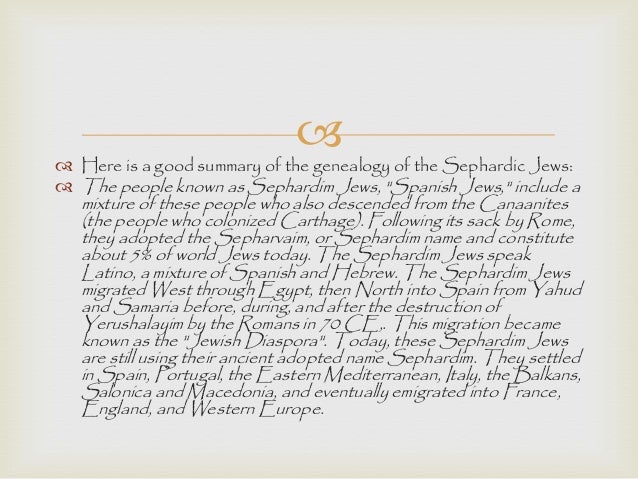 Here is a good summary of the genealogy of the Sephardic Jews:
The people known as Sephardim Jews, "Spanish Jews," include a
mixture of these people who also descended from the Canaanites
(the people who colonized Carthage). Following its sack by Rome,
they adopted the Sepharvaim, or Sephardim name and constitute
about 5% of world Jews today. The Sephardim Jews speak
Latino, a mixture of Spanish and Hebrew. The Sephardim Jews
migrated West through Egypt, then North into Spain from Yahud
and Samaria before, during, and after the destruction of
Yerushalayim by the Romans in 70 CE,. This migration became
known as the "Jewish Diaspora". Today, these Sephardim Jews
are still using their ancient adopted name Sephardim. They settled
in Spain, Portugal, the Eastern Mediterranean, Italy, the Balkans,
Salonica and Macedonia, and eventually emigrated into France,
England, and Western Europe.